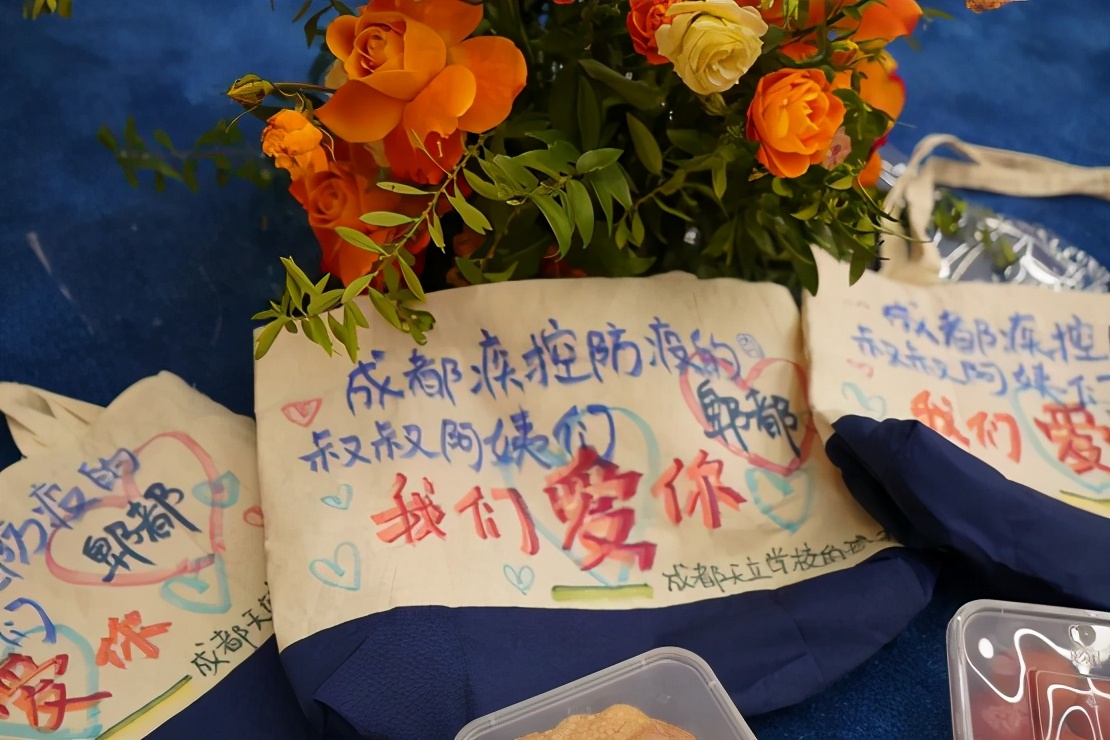 成都疾控防疫的
郫都
叔叔阿姨们
我们爱你
成都天立学校的
防疫的
郫都
们
爱你
成都天
成都疾控
叔叔阿姨们
我们爱